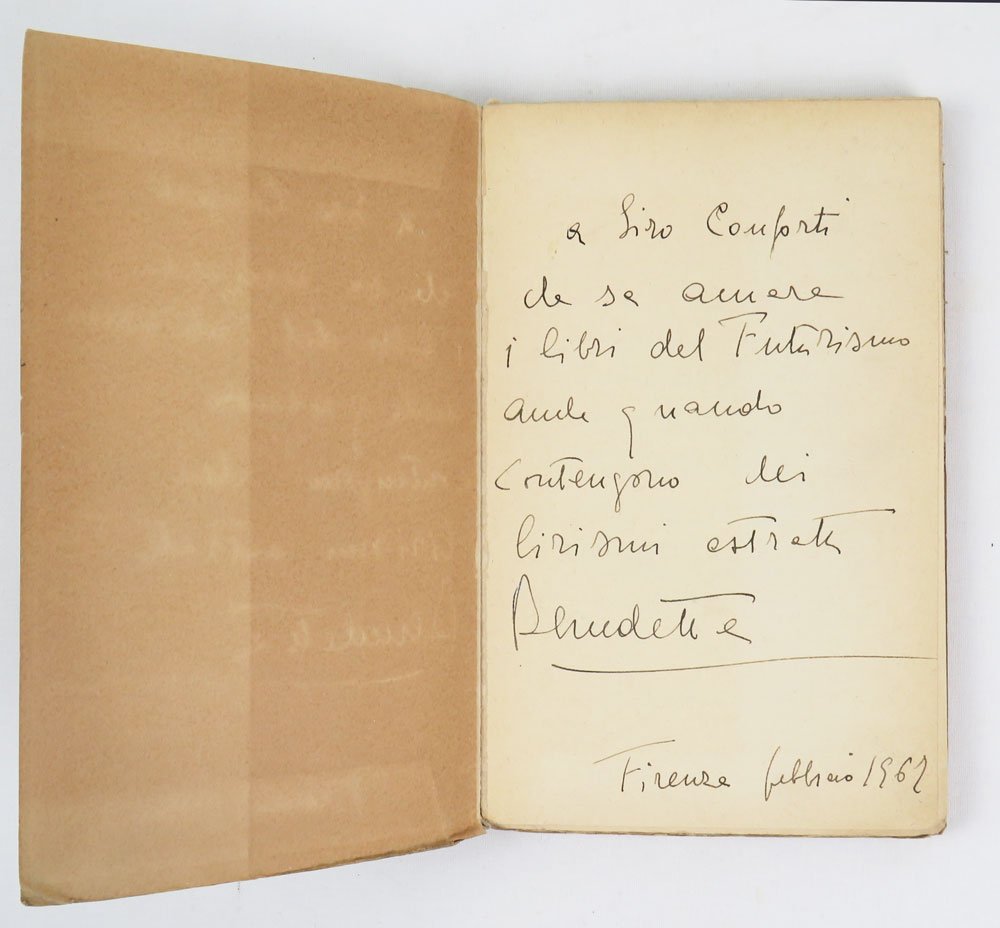 a Siro Conforti
che sa amare
i libri del Futurismo
anche quando
contengono dei
lirismi astratti
Benedetta
Firenze febbraio 1962